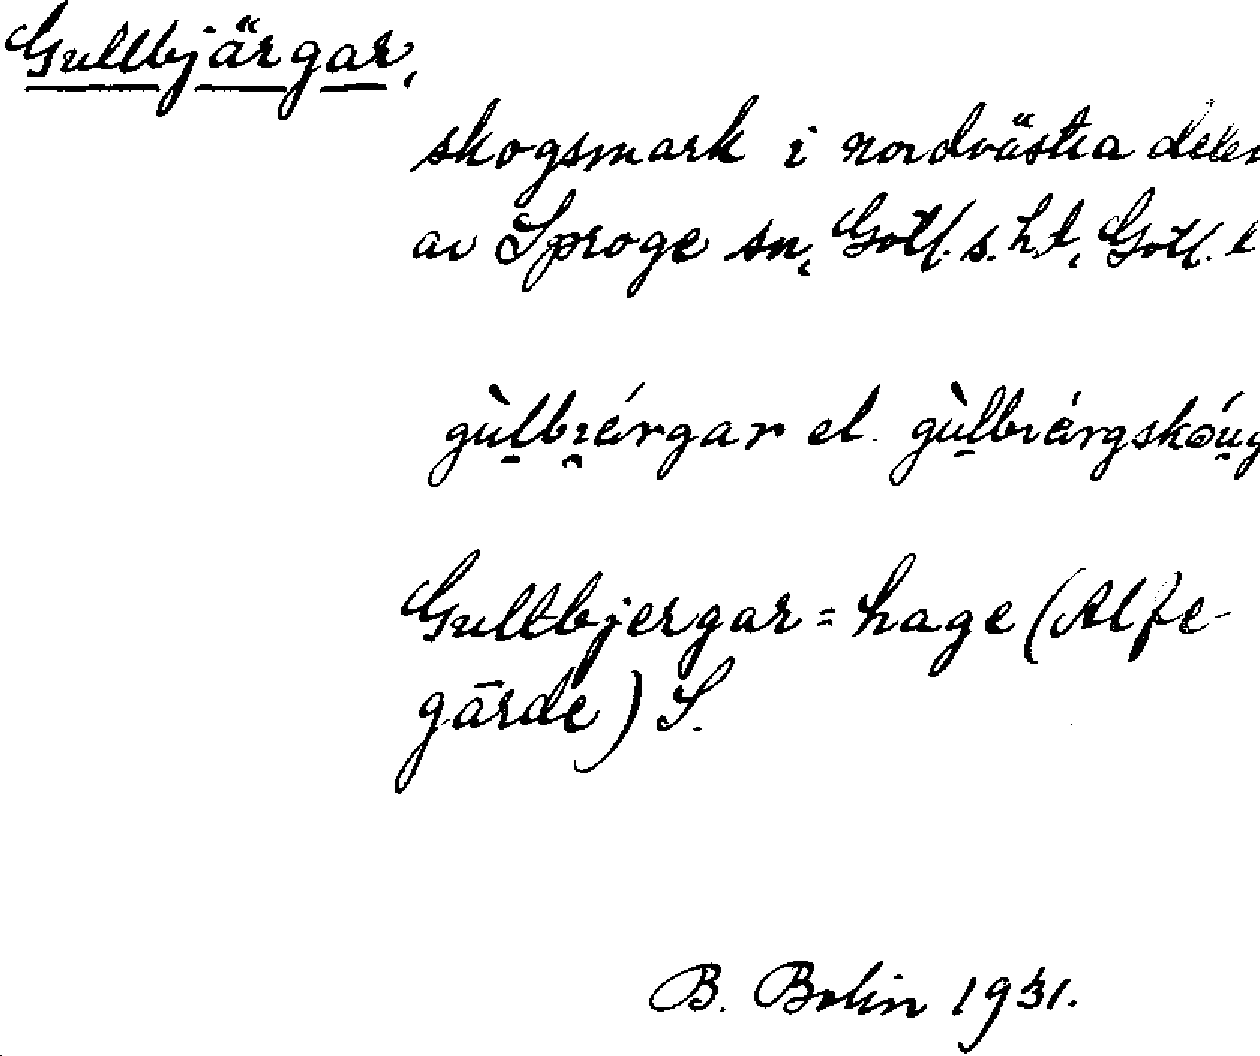 Gullbjärgar,
skogsmark i nordvästra delen
av Sproge sn, Gotl. s. hd, Gotl. l
gùlbɪérgar el. gùlbɪérgskóug
Gultbjergar=hage (Alfe-
gārde) S.
B. Bolin 1931.